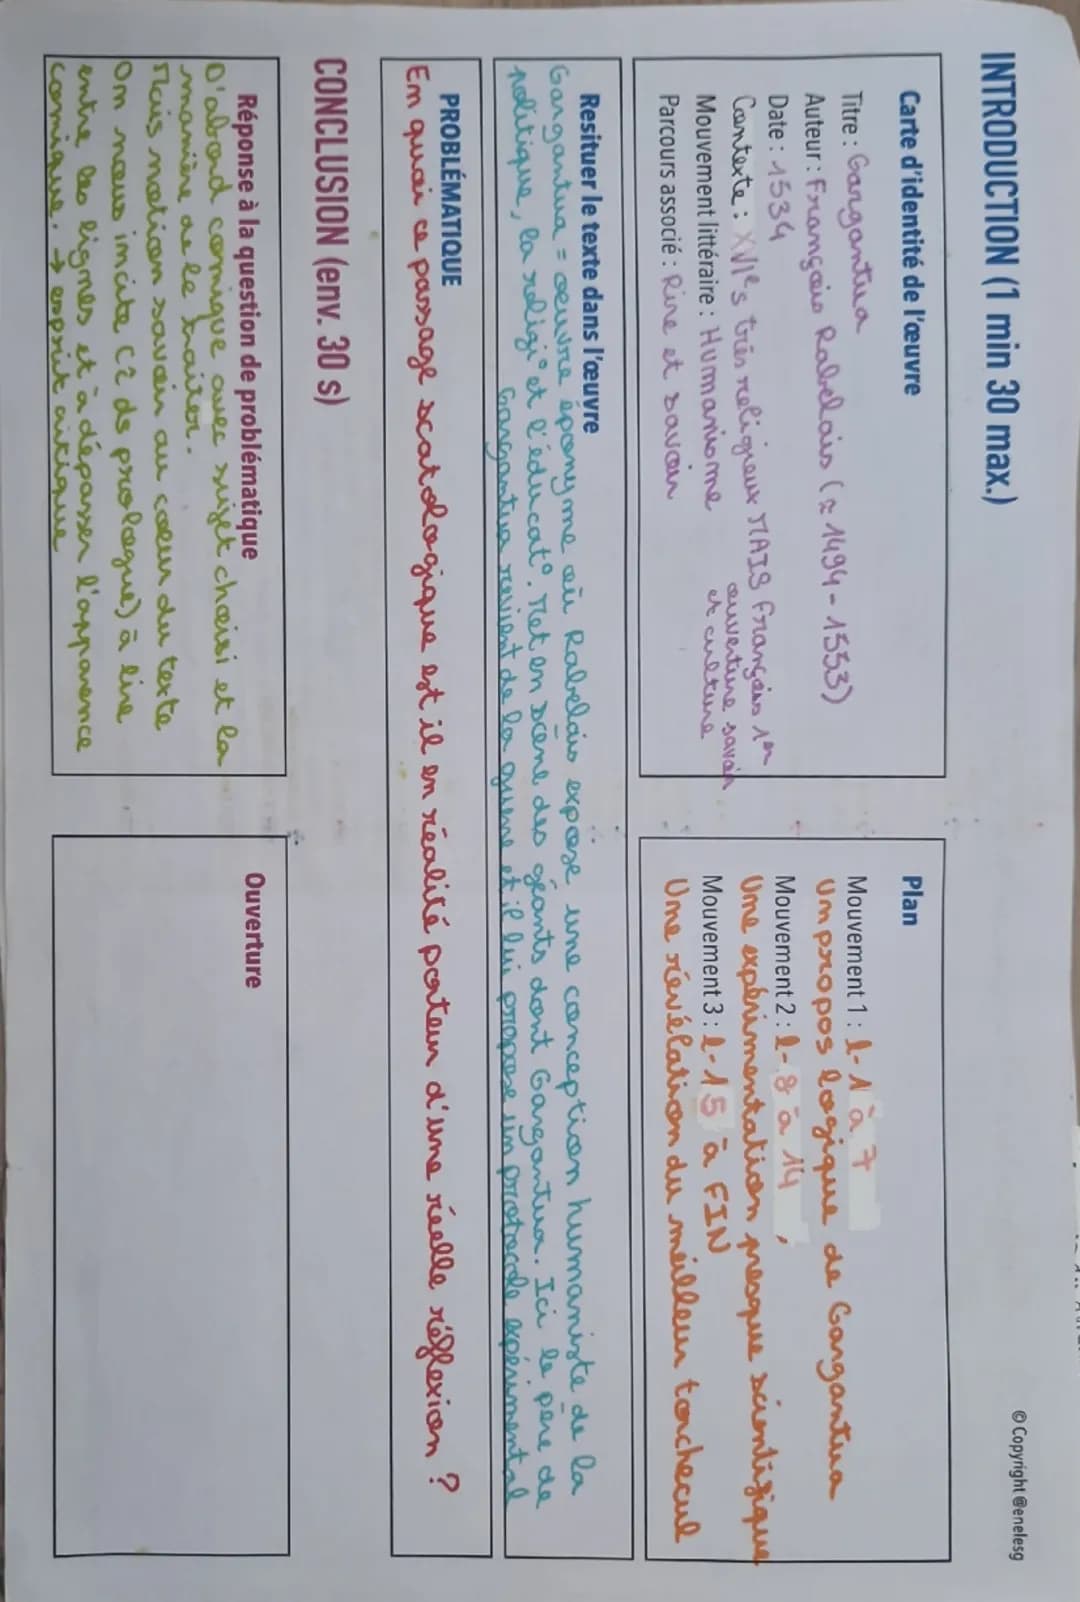 © Copyright @enelesg
INTRODUCTION (1 min 30 max.)
Carte d'identité de l'œuvre
Titre : Gargantua
Auteur : François Rabelais (≈ 1494 - 1553)
Date : 1534
Contexte : XVIe s très religieux MAIS François 1er
ouverture savoir
et culture
Mouvement littéraire : Humanisme
Parcours associé : Rire et savoir
Plan
Mouvement 1 : l-1 à 7
Un propos logique de Gargantua
Mouvement 2 : l-8 à 14
Une expérimentation presque scientifique
Mouvement 3 : l-15 à FIN
Une révélation du meilleur torchecul
Resituer le texte dans l'œuvre
Gargantua = œuvre éponyme où Rabelais expose une conception humaniste de la
politique, la religi° et l'éducat°. Met en scène des géants dont Gargantua. Ici le père de
Gargantua revient de la guerre et il lui propose un protocole expérimental
PROBLÉMATIQUE
En quoi ce passage scatologique est il en réalité porteur d'une réelle réflexion ?
CONCLUSION (env. 30 s)
Réponse à la question de problématique
D'abord comique avec sujet choisi et la
manière de le traiter.
Mais notion savoir au cœur du texte
On nous incite (2 ds prologue) à lire
entre les lignes et à dépasser l'apparence
comique. → esprit critique
Ouverture